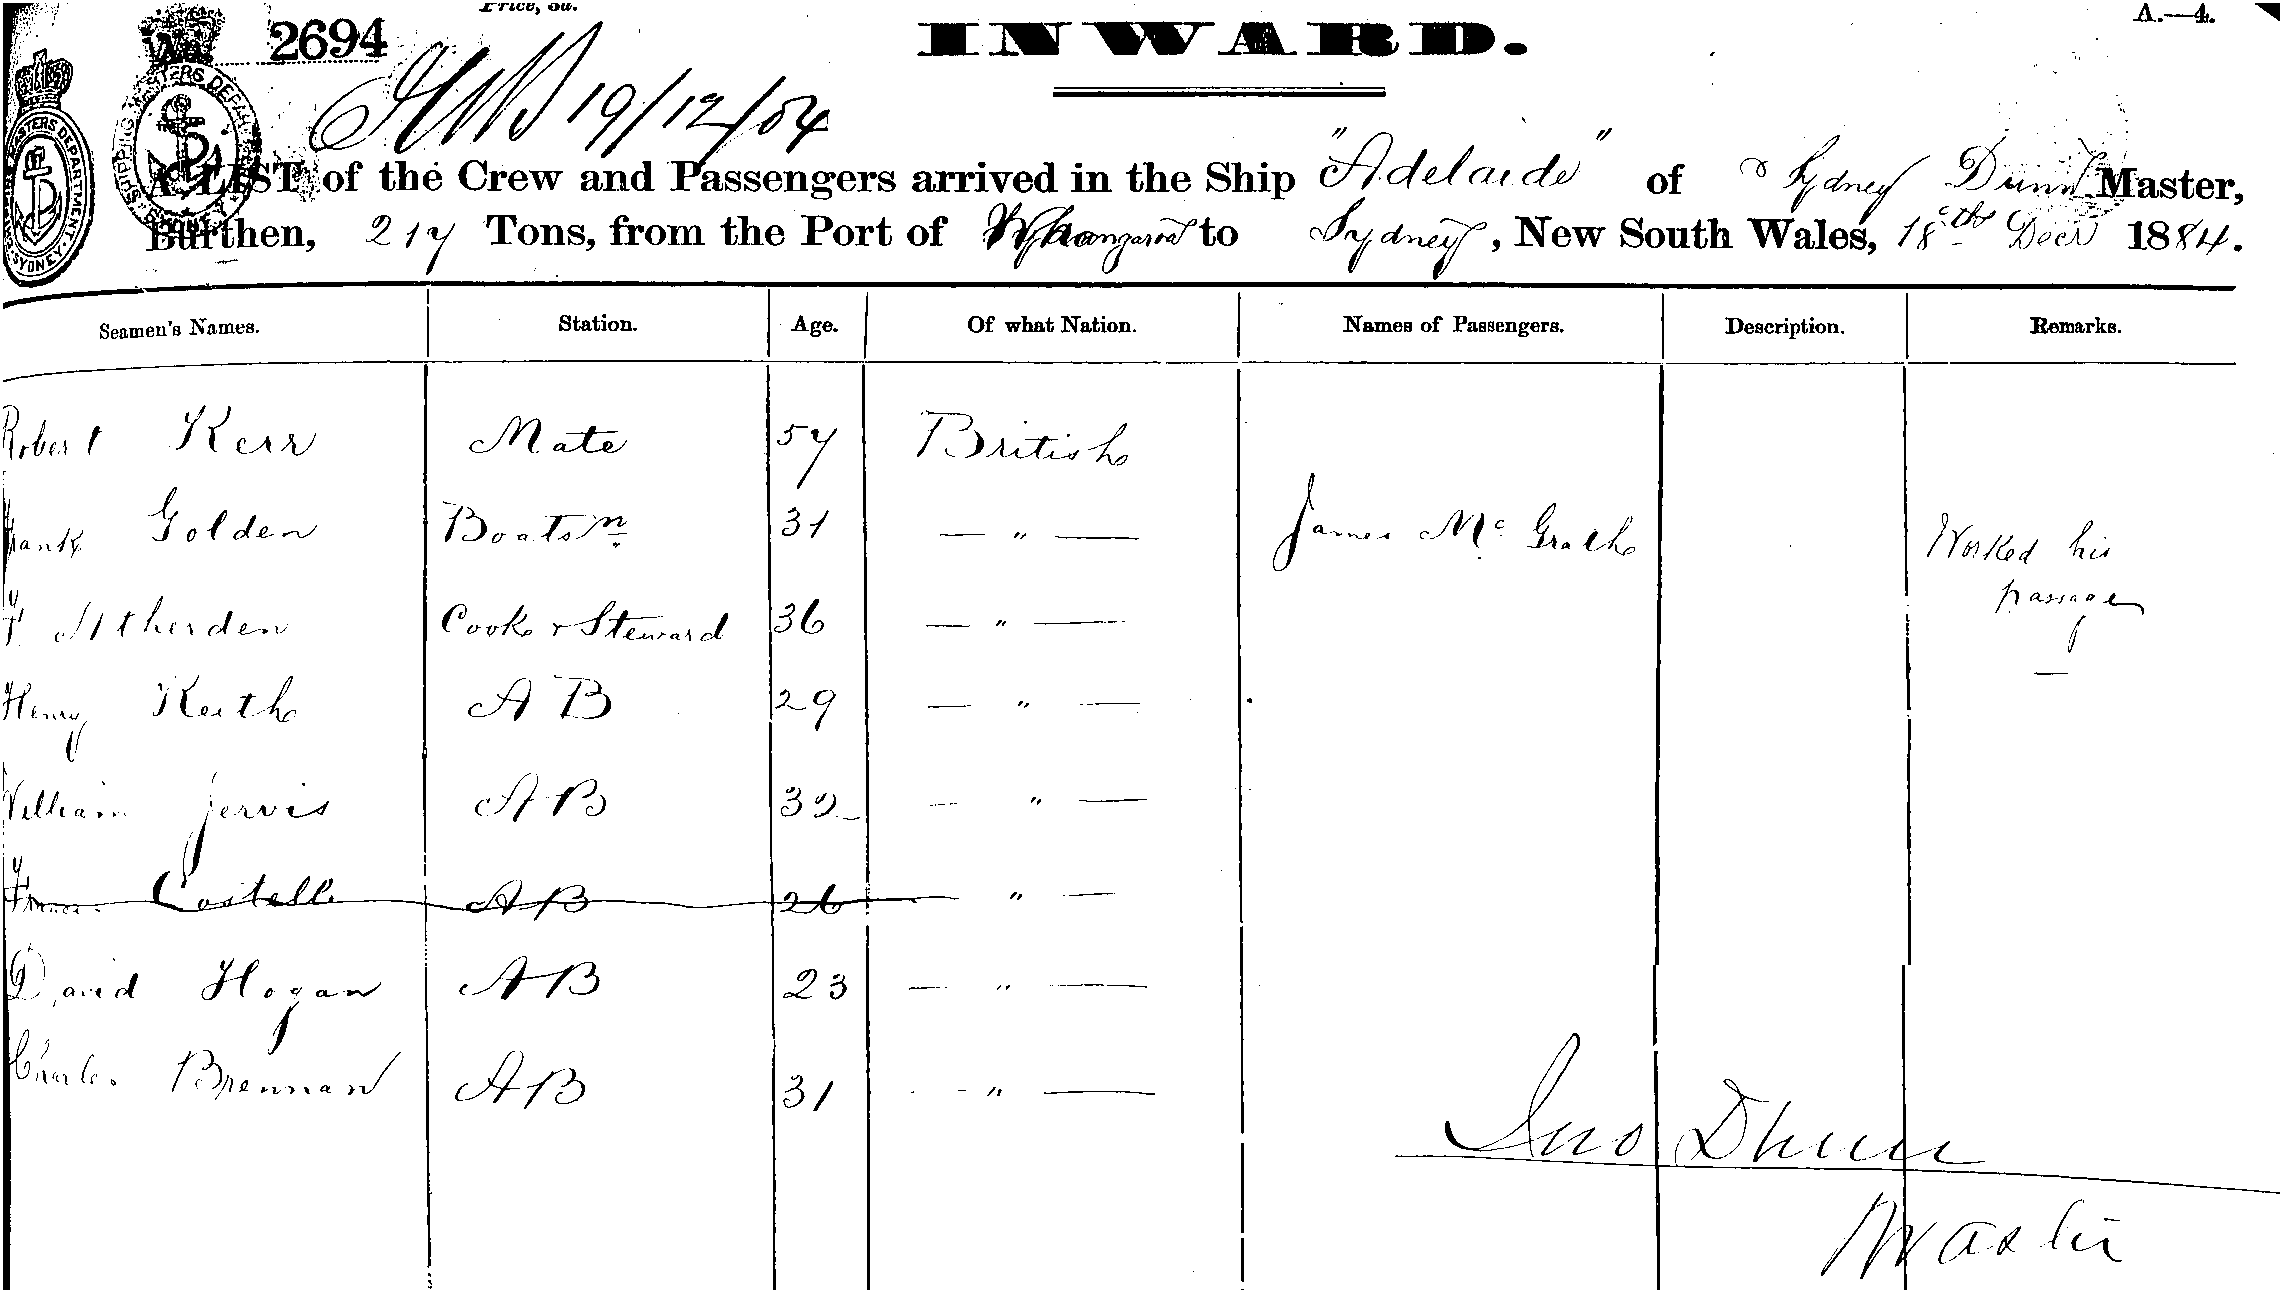 Price, 3d.
A.—4.
No. 2694
INWARD.
19/12/84
A LIST of the Crew and Passengers arrived in the Ship "Adelaide" of Sydney Dunn Master,
Burthen, 217 Tons, from the Port of Whangaroa to Sydney, New South Wales, 18th Decr 1884.
Seamen's Names. Station. Age. Of what Nation. Names of Passengers. Description. Remarks.
Robert Kerr Mate 57 British
Frank Golden Boatsn 31 — " — James Mc Grath Worked his
passage
F Atherden Cook & Steward 36 — " —
Henry Keith A B 29 — " —
William Jervis A B 32 — " —
Costello A B 26 — " —
David Hogan A B 23 — " —
Charles Brennan A B 31 — " —
Jno Dunn
Master
SHIPPING MASTERS DEPARTMENT SYDNEY
SHIPPING MASTERS DEPARTMENT SYDNEY